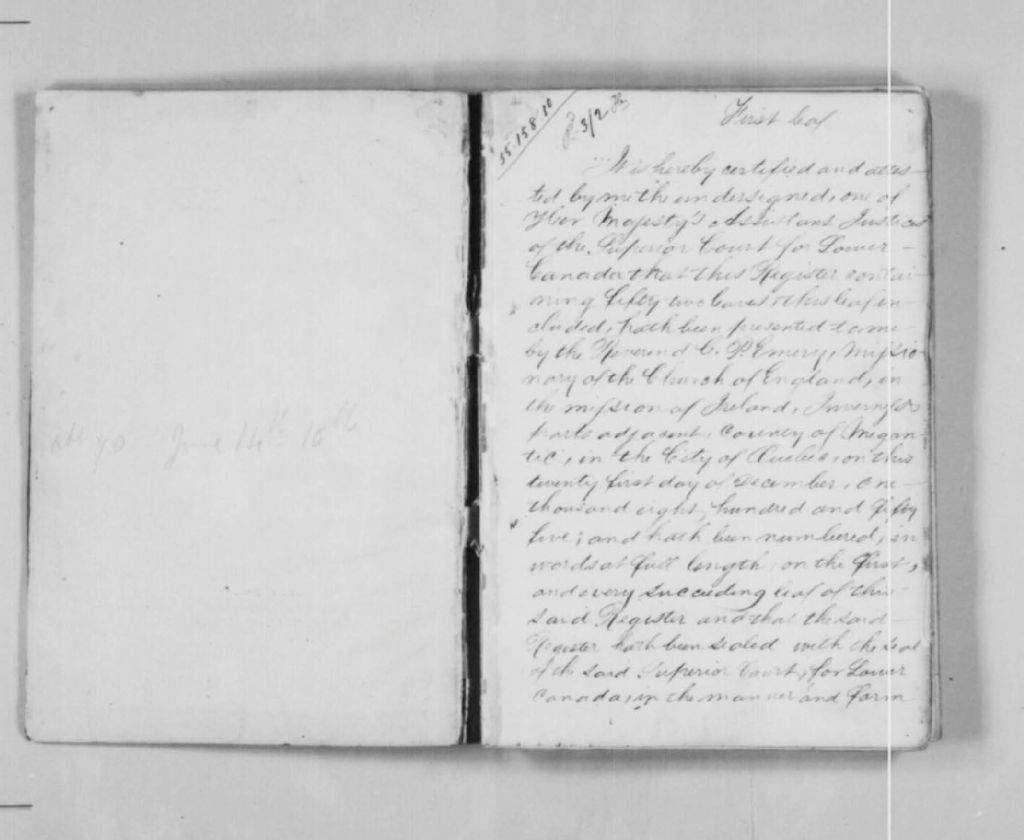 June 14th 18
55-158-10
3/2
First leaf
It is hereby certified and attes-
ted by me the undersigned, one of
Her Majesty's Assistant Justices
of the Superior Court for Lower
Canada that this Register contai-
ning fifty two leaves, this leaf in-
cluded, hath been presented to me
by the Reverend C. P. Emery, Missio-
nary of the Church of England, in
the mission of Ireland, Inverness &
parts adjacent, County of Megan-
tic, in the City of Quebec, on this
twenty first day of December, one
thousand eight hundred and fifty
five; and hath been numbered, in
words at full length, on the first,
and every succeeding leaf of this
said Register and that the said
Register hath been sealed with the seal
of the said Superior Court, for Lower
Canada, in the manner and form